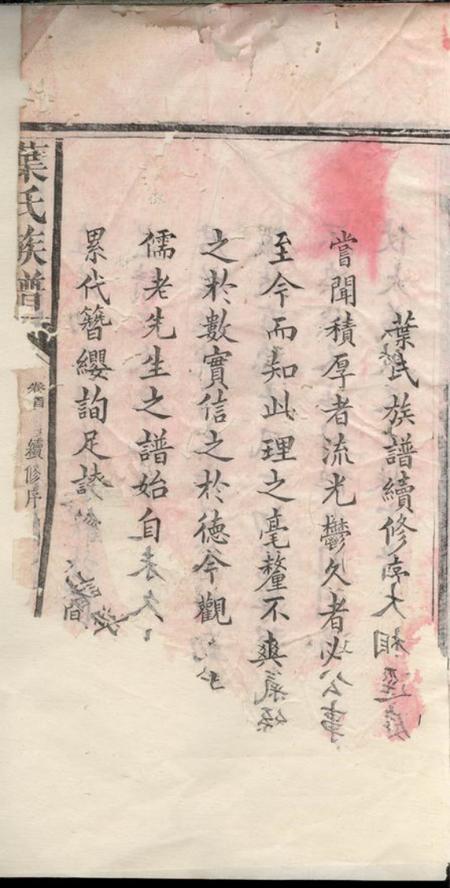 葉氏族譜續修序
嘗聞積厚者流光鬱久者必
至今而知此理之毫釐不爽
之於數實信之於德今觀
儒老先生之譜始自
累代簪纓詢足
葉氏族譜
卷首
續修序